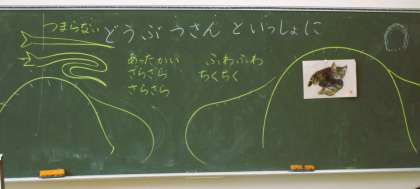 つまらない
どうぶつさんといっしょに
あったかい
さらさら
さらさら
ふわふわ
ちくちく